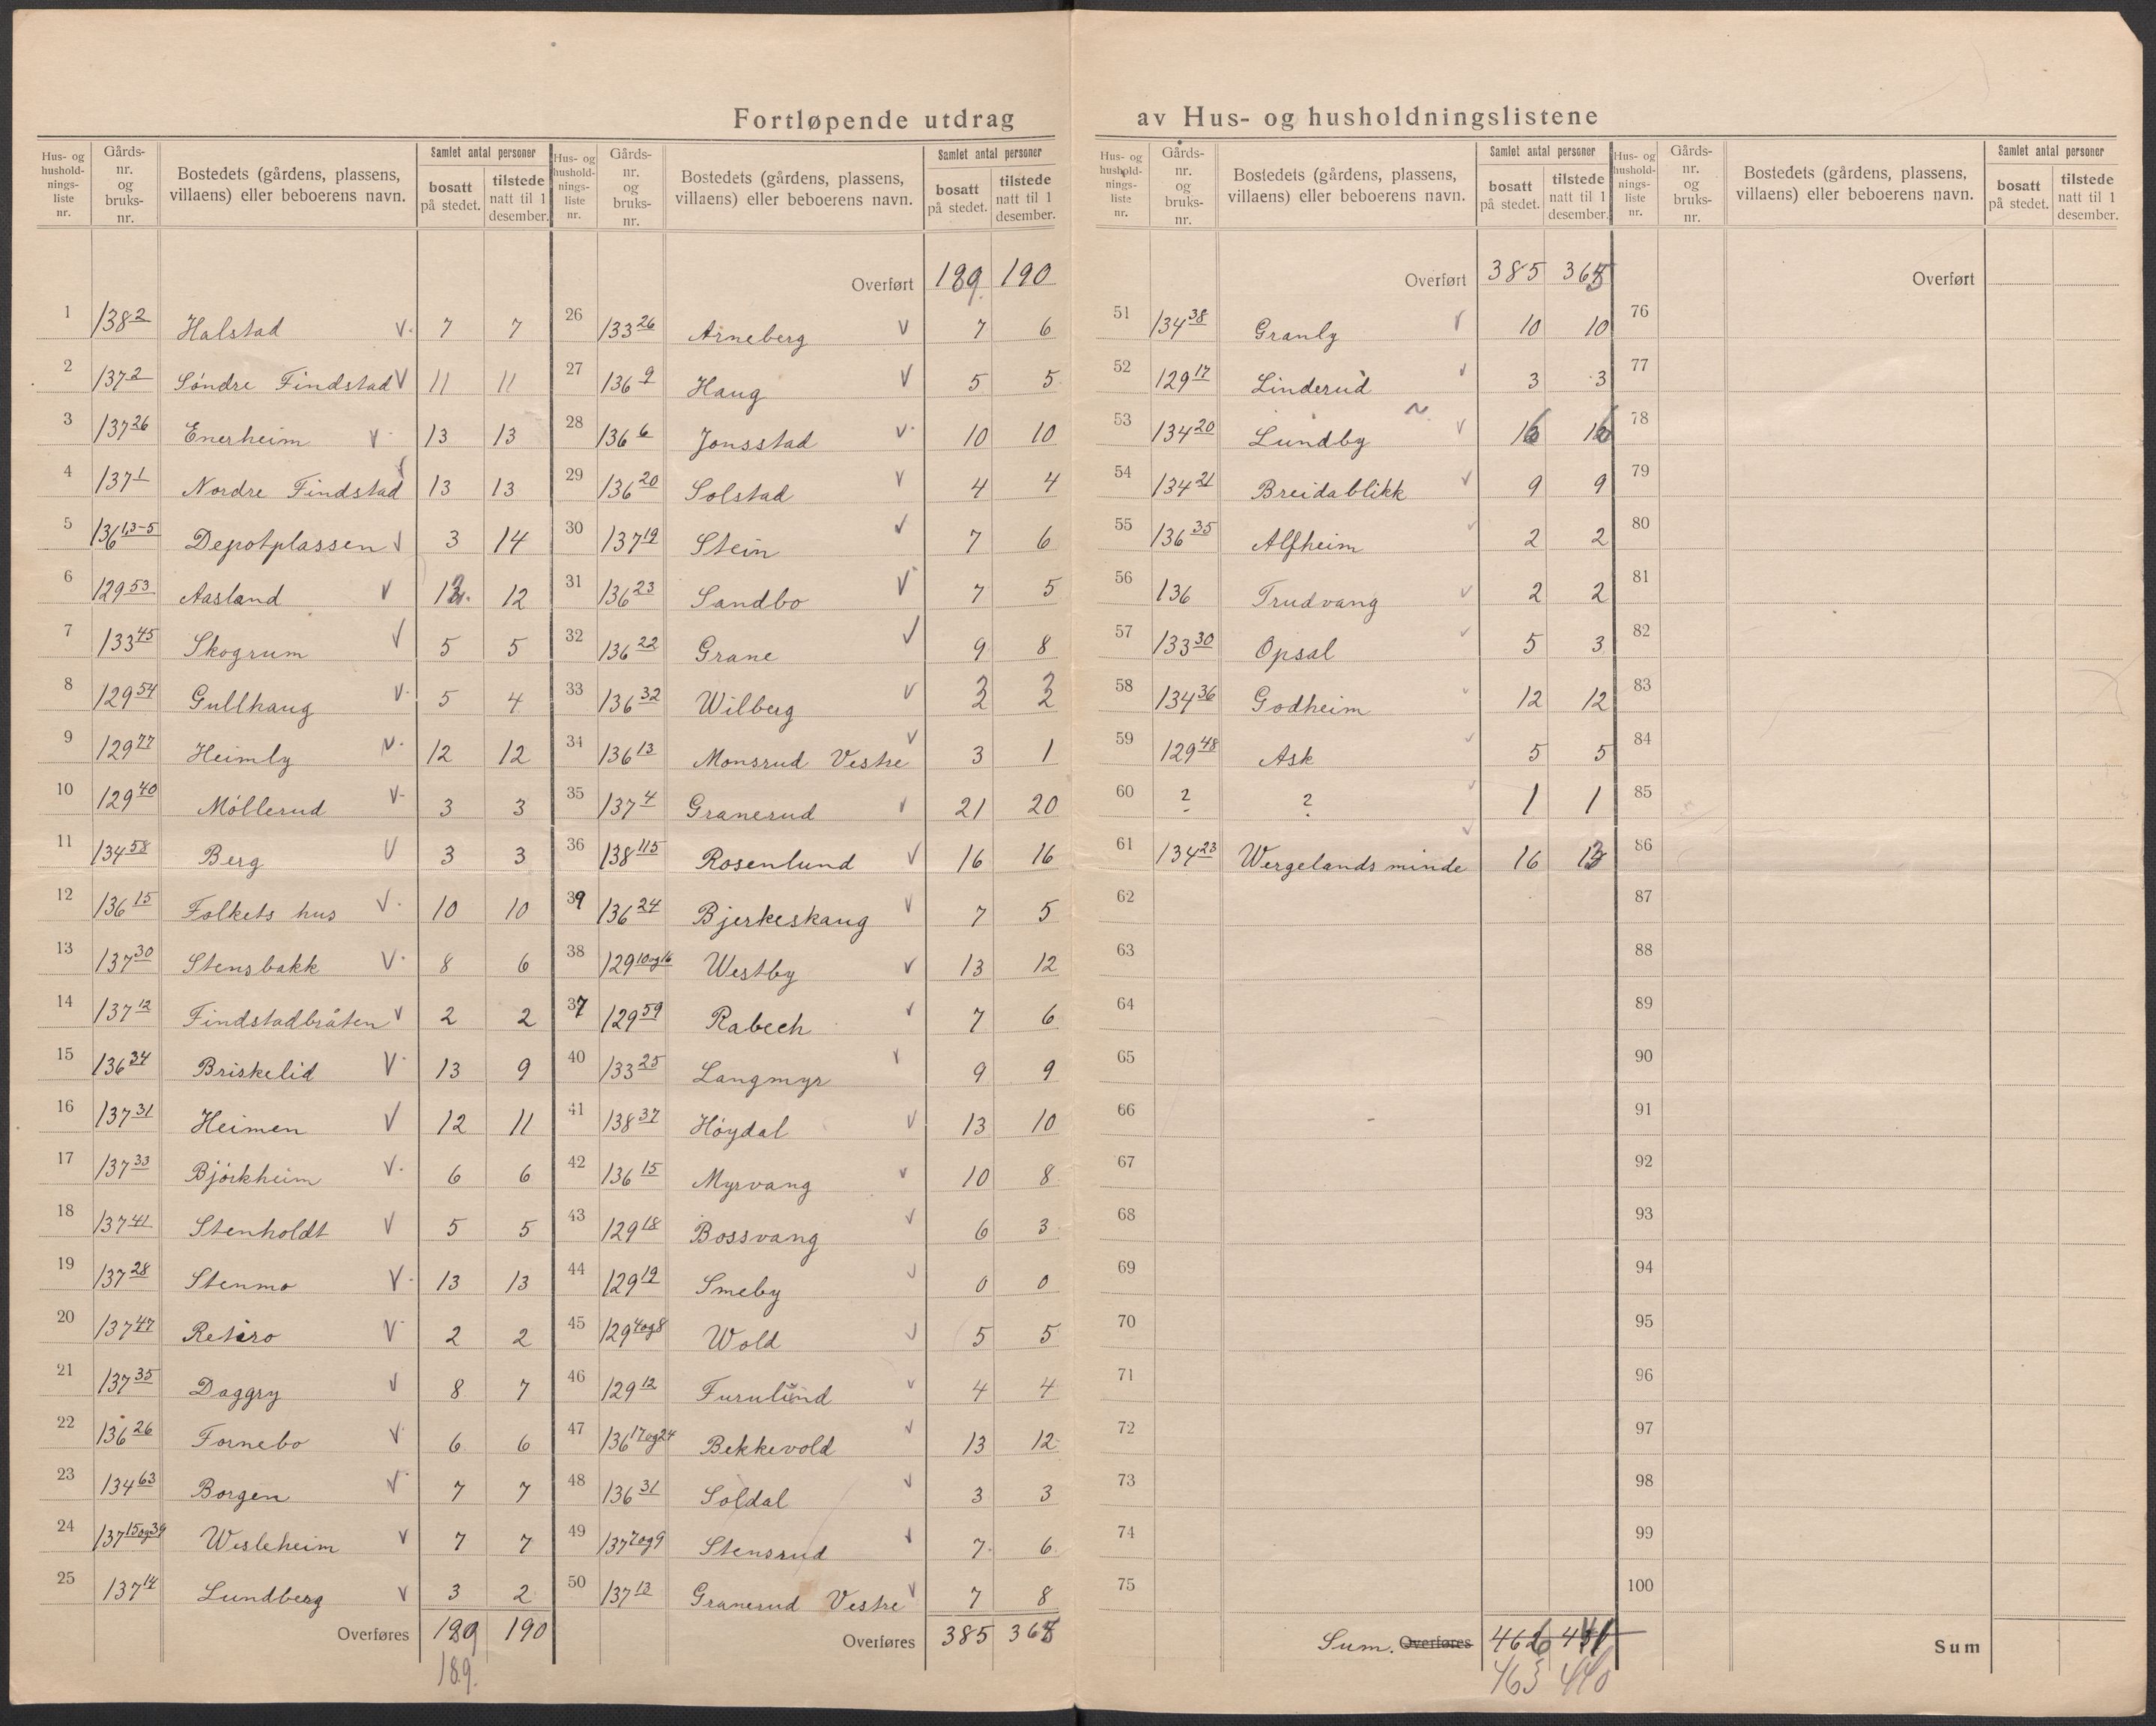 Fortløpende utdrag av Hus- og husholdningslistene
Hus- og hushold-nings-liste nr. | Gårds-nr. og bruks-nr. | Bostedets (gårdens, plassens, villaens) eller beboerens navn. | Samlet antal personer | bosatt på stedet. | tilstede natt til 1 desember.
1 138 2 Halstad V. 7 7
2 137 2 Søndre Findstad V 11 11
3 137 26 Enerheim V 13 13
4 137 1 Nordre Findstad 13 13
5 136 1,3-5 Depotplassen V 3 14
6 129 53 Aasland V 12
7 133 45 Skogrum V 5 5
8 129 54 Gullhaug V. 5 4
9 129 77 Heimly V. 12 12
10 129 40 Møllerud V 3 3
11 134 58 Berg V 3 3
12 136 15 Folkets hus V. 10 10
13 137 30 Stensbakk V. 8 6
14 137 12 Findstadbråten V 2 2
15 136 34 Briskelid V 13 9
16 137 31 Heimen V 12 11
17 137 33 Bjórkheim V. 6 6
18 137 41 Stenholdt V 5 5
19 137 28 Stenmo V 13 13
20 137 47 Retiro V 2 2
21 137 35 Daggry V 8 7
22 136 26 Fornebo V 6 6
23 134 63 Borgen V 7 7
24 137 15 og 39 Wesleheim V 7 7
25 137 14 Lundberg V 3 2
Overføres 189 190
189.
Hus- og hushold-nings-liste nr. | Gårds-nr. og bruks-nr. | Bostedets (gårdens, plassens, villaens) eller beboerens navn. | Samlet antal personer | bosatt på stedet. | tilstede natt til 1 desember.
Overført 189 190
26 133 26 Arneberg V 7 6
27 136 9 Haug V 5 5
28 136 6 Jonsstad V. 10 10
29 136 20 Solstad V 4 4
30 137 19 Stein V 7 6
31 136 23 Sandbo V 7 5
32 136 22 Grane V 9 8
33 136 32 Wilberg V
34 136 13 Monsrud Vestre V 3 1
35 137 4 Granerud V 21 20
36 138 115 Rosenlund V 16 16
39 136 24 Bjerkeskaug V 7 5
38 129 10 og 16 Westby V 13 12
37 129 59 Rabech V 7 6
40 133 25 Langmyr V 9 9
41 138 37 Høydal V 13 10
42 136 15 Myrvang V 10 8
43 129 18 Bossvang V 6 3
44 129 19 Smeby V 0 0
45 129 4 og 8 Wold V 5 5
46 129 12 Furulund V 4 4
47 136 17 og 24 Bekkevold V 13 12
48 136 31 Soldal V 3 3
49 137 7 og 9 Stensrud V 7 6
50 137 13 Granerud Vestre V 7 8
Overføres 385
Hus- og hushold-nings-liste nr. | Gårds-nr. og bruks-nr. | Bostedets (gårdens, plassens, villaens) eller beboerens navn. | Samlet antal personer | bosatt på stedet. | tilstede natt til 1 desember.
Overført 385
51 134 38 Granly V 10 10
52 129 17 Linderud V 3 3
53 134 20 Lundby V
54 134 21 Breidablikk V 9 9
55 136 35 Alfheim V 2 2
56 136 Trudvang V 2 2
57 133 30 Opsal V 5 3
58 134 36 Godheim V 12 12
59 129 48 Ask V 5 5
60 ? ? V 1 1
61 134 23 Wergelands minde V 16
62
63
64
65
66
67
68
69
70
71
72
73
74
75
Sum. Overføres
463 440
Hus- og hushold-nings-liste nr. | Gårds-nr. og bruks-nr. | Bostedets (gårdens, plassens, villaens) eller beboerens navn. | Samlet antal personer | bosatt på stedet. | tilstede natt til 1 desember.
Overført
76
77
78
79
80
81
82
83
84
85
86
87
88
89
90
91
92
93
94
95
96
97
98
99
100
Sum